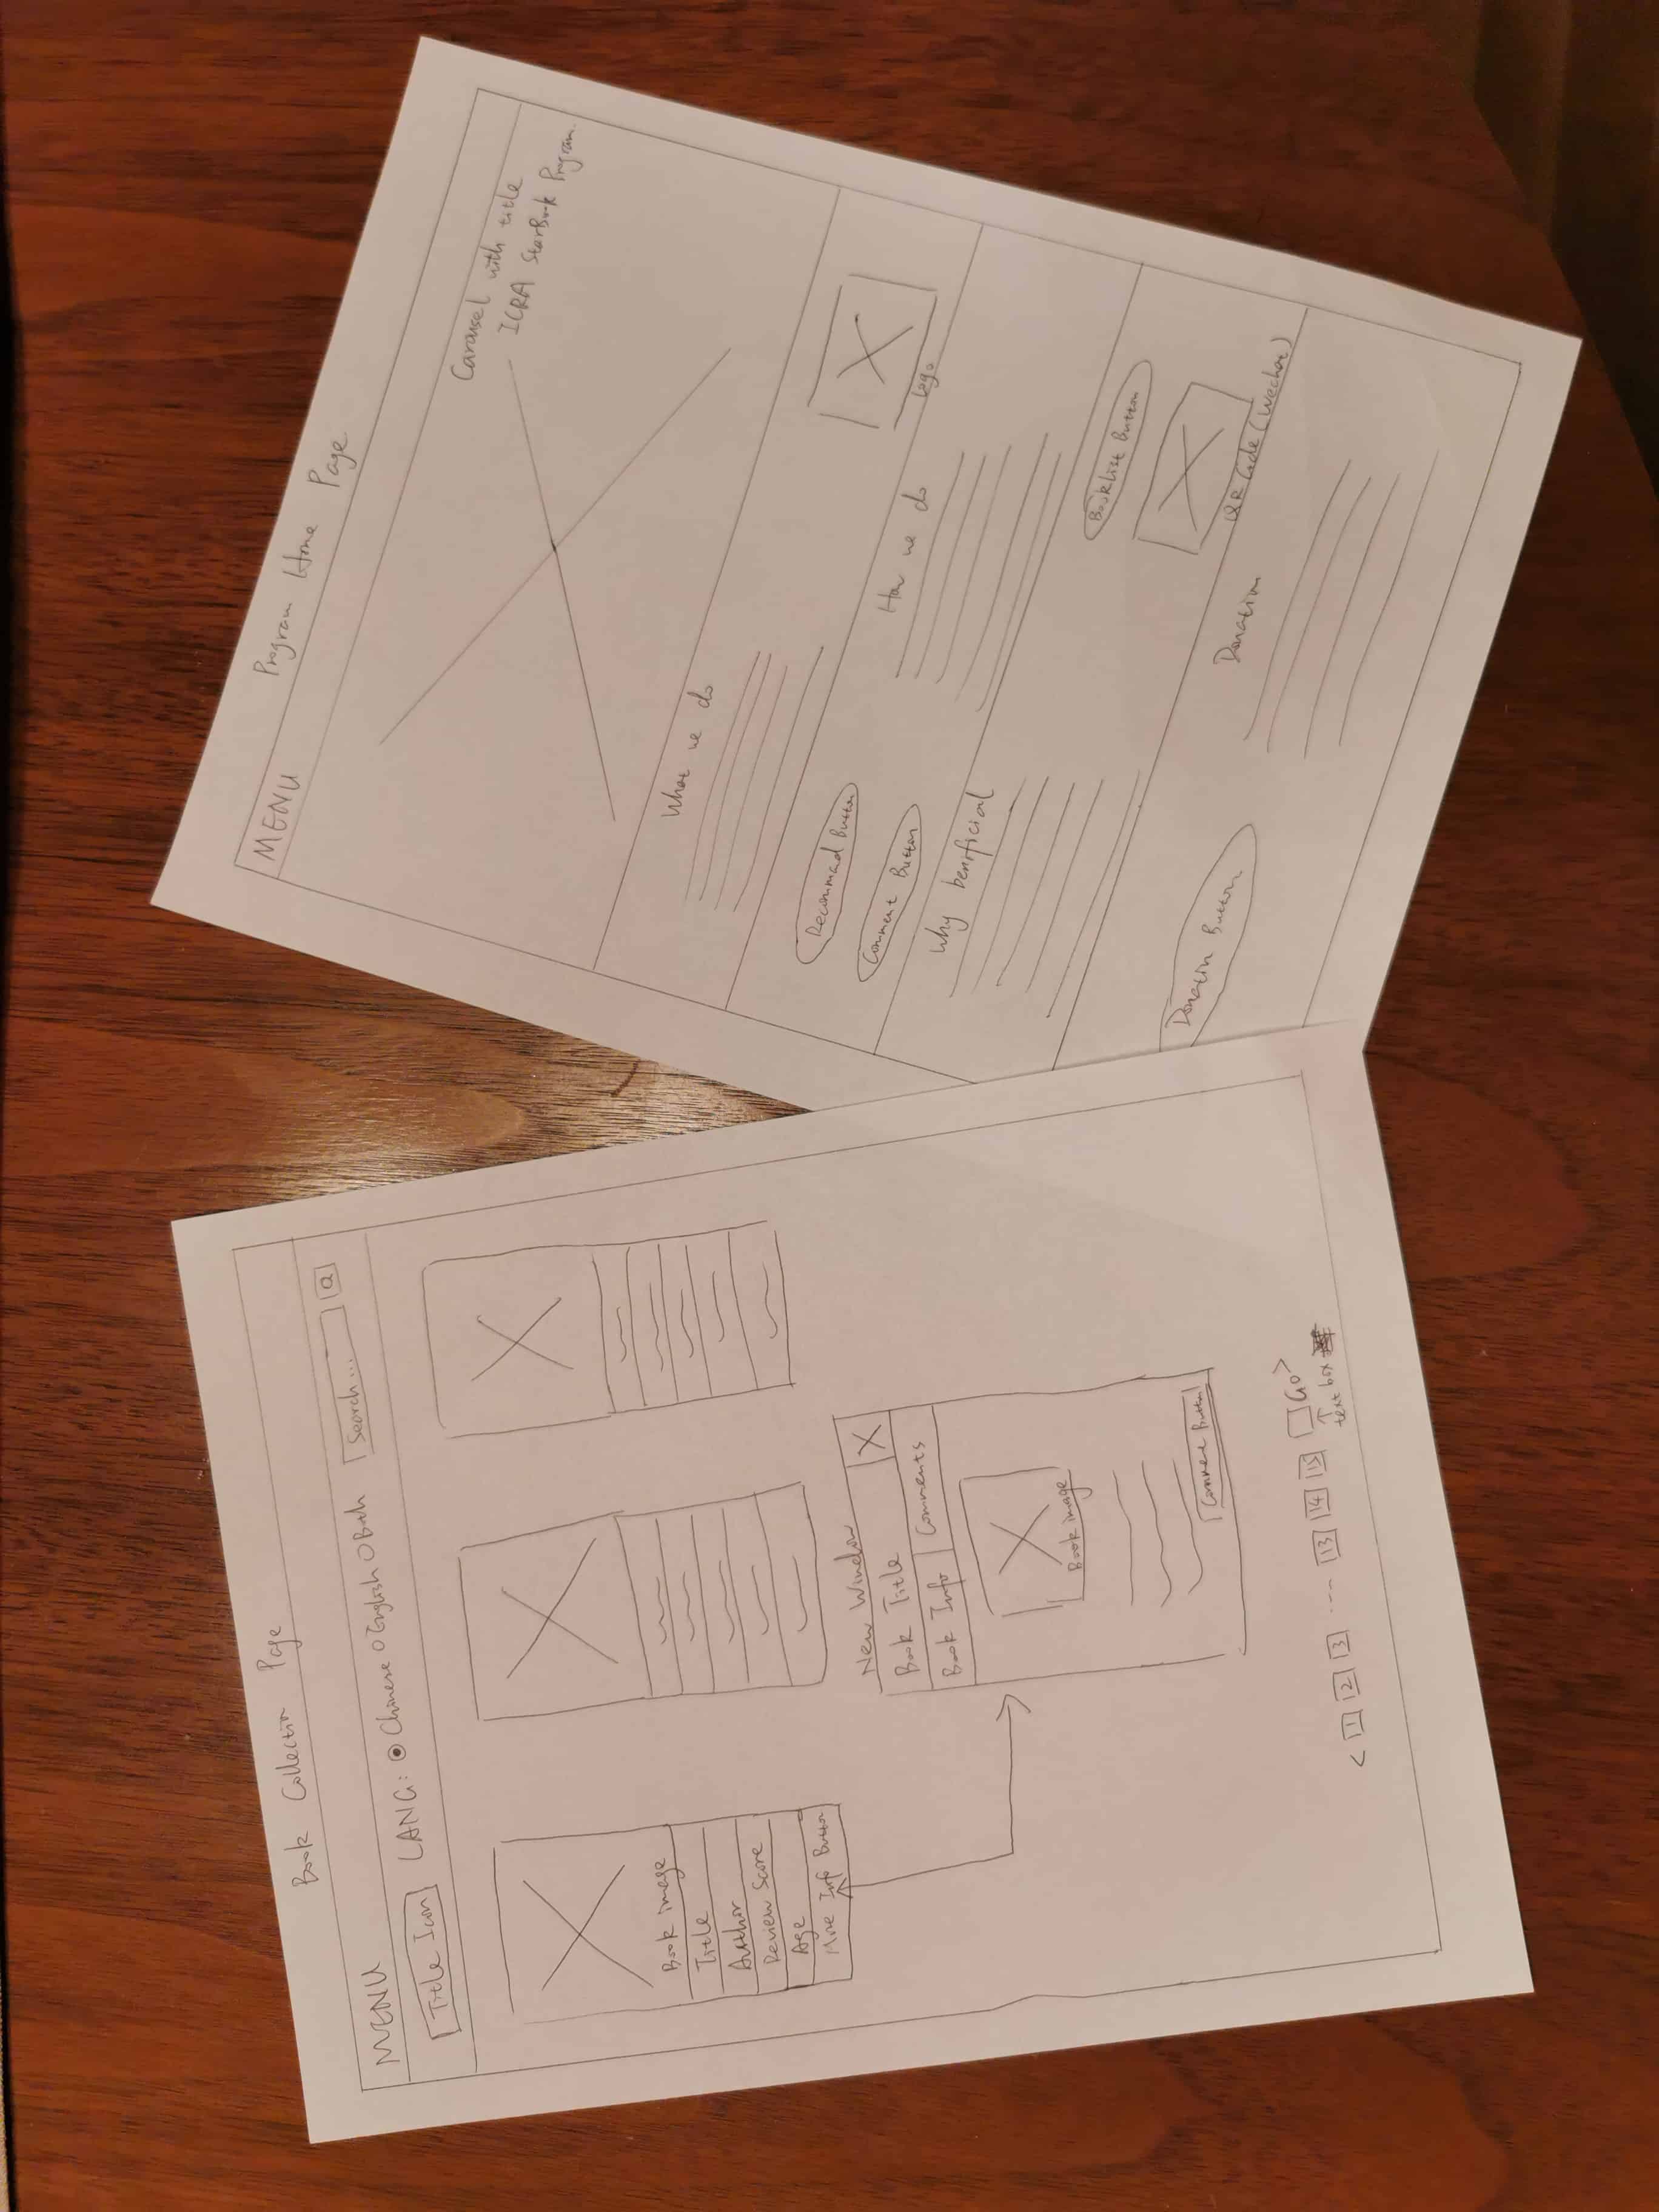 Book Collectin Page
MENU
Title Icon LANG: Chinese English Both Search...
Book image
Title
Author
Review Score
Age
More Info Button
New Window
Book Title X
Book Info Comments
Book image
Comment Button
< 1 2 3 --- 13 14 15 Go >
text box
Program Home Page
MENU
Carousel with title
ICRA StarBook Program.
What we do
Recommad Button
Comment Button
Logo
How we do
Why benificial
Booklist Button
QR Code (Wechat)
Donation Button
Donation